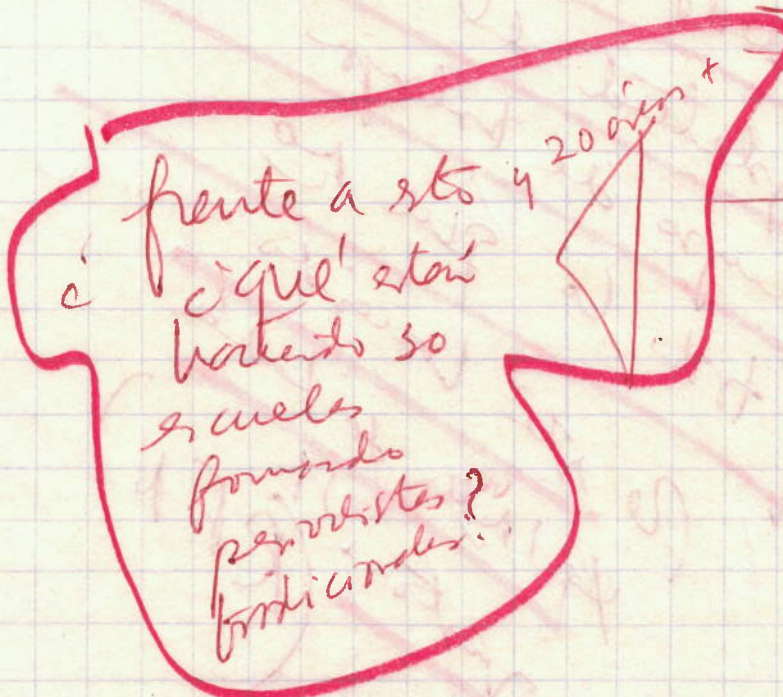 frente a sto y 20 años +
¿
¿qué están
haciendo 30
escuelas
formando
periodistas?
tradicionales?